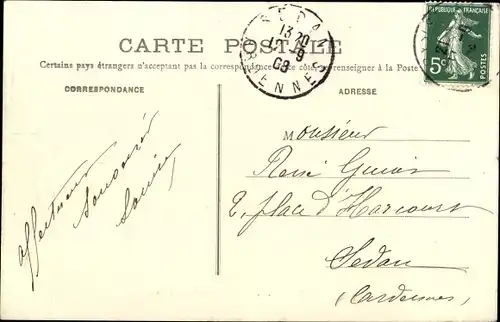 CARTE POSTALE
Certains pays étrangers n'acceptant pas la correspondance de ce côté, se renseigner à la Poste
CORRESPONDANCE
ADRESSE
SEDAN
13 20
12 - 9
08
ARDENNES
REPUBLIQUE FRANÇAISE
5c
POSTES
Monsieur
René
2, place d'Harcourt
Sedan
(Ardennes)
Affectueux
Souvenir
Louise